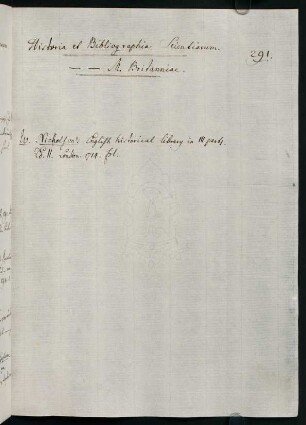 Historia et Bibliographia Scientiarum
291.
— — M. Britanniae.
Nicholson's English historical library in III parts.
Ed. II. London. 1714. fol.